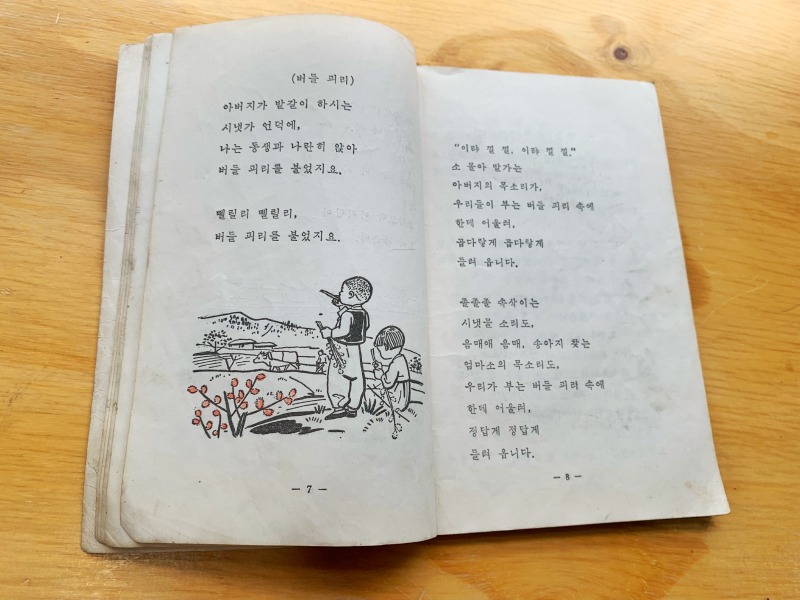 (버들 피리)
아버지가 밭갈이 하시는
시냇가 언덕에,
나는 동생과 나란히 앉아
버들 피리를 불었지요.
삘릴리 삘릴리,
버들 피리를 불었지요.
— 7 —
"이랴 낄 낄, 이랴 낄 낄."
소 몰아 밭가는
아버지의 목소리가,
우리들이 부는 버들 피리 속에
한데 어울려,
곱다랗게 곱다랗게
들려 옵니다.
졸졸졸 속삭이는
시냇물 소리도,
음매애 음매, 송아지 찾는
엄마소의 목소리도,
우리가 부는 버들 피리 속에
한데 어울려,
정답게 정답게
들려 옵니다.
— 8 —